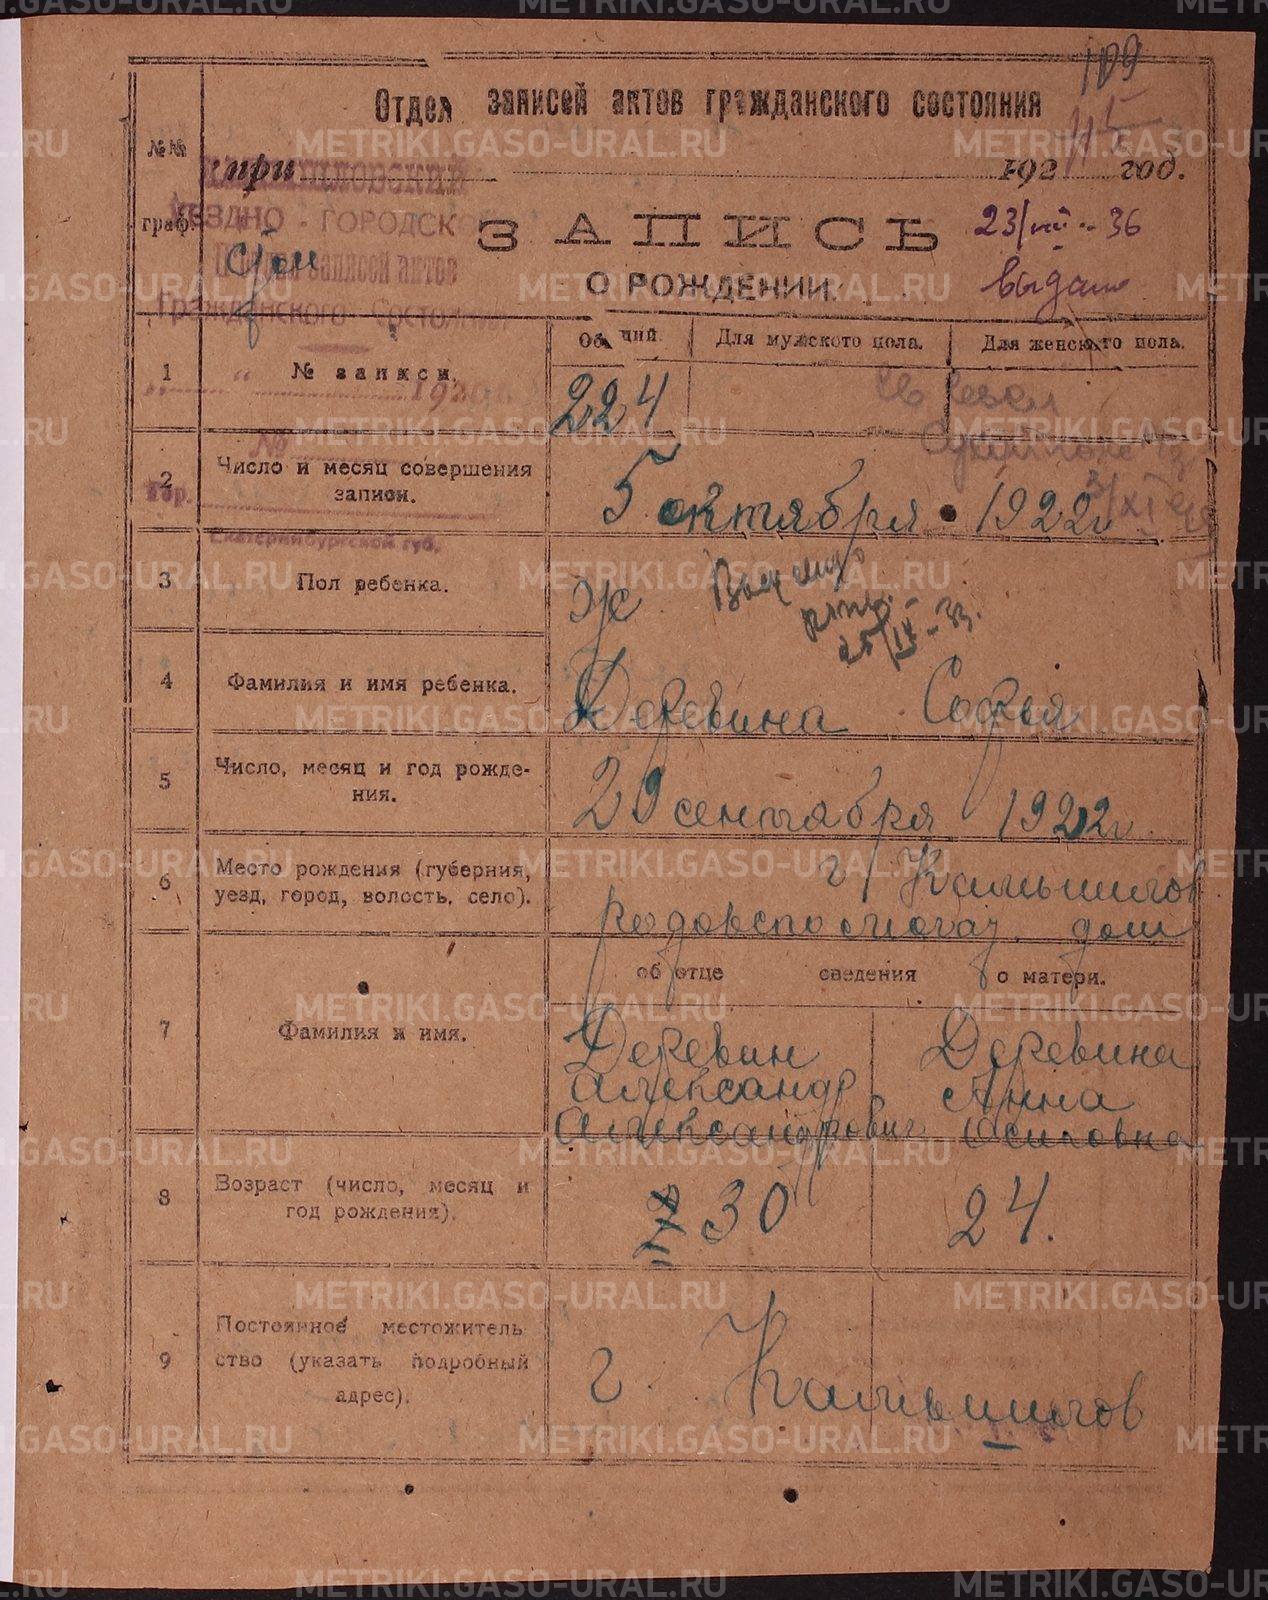 109
115
Отдел записей актов гражданского состояния
№№ граф.
при 192 год.
КАМЫШЛОВСКИЙ
УЕЗДНО - ГОРОДСК
Отдел записей актов
Гражданского Состояния
192
№
гор.
Екатеринбургской губ.
ЗАПИСЬ
О РОЖДЕНИИ.
23/VIII - 36
выдано
Общий. Для мужского пола. Для женского пола.
1 № записи. 224
2 Число и месяц совершения
записи. 5 октября 1922 г.
3 Пол ребенка. Ж
25/IX - 33.
4 Фамилия и имя ребенка. Деревина Софья
5 Число, месяц и год рожде-
ния. 29 сентября 1922 г.
6 Место рождения (губерния, г. Камышлов
уезд, город, волость, село). Родовспомогат. дом
об отце сведения о матери.
7 Фамилия и имя. Деревин Деревина
Александр Анна
Александрович Осиповна
8 Возраст (число, месяц и
год рождения). 30 24.
9 Постоянное местожитель
ство (указать подробный
адрес). г. Камышлов
METRIKI.GASO-URAL.RU